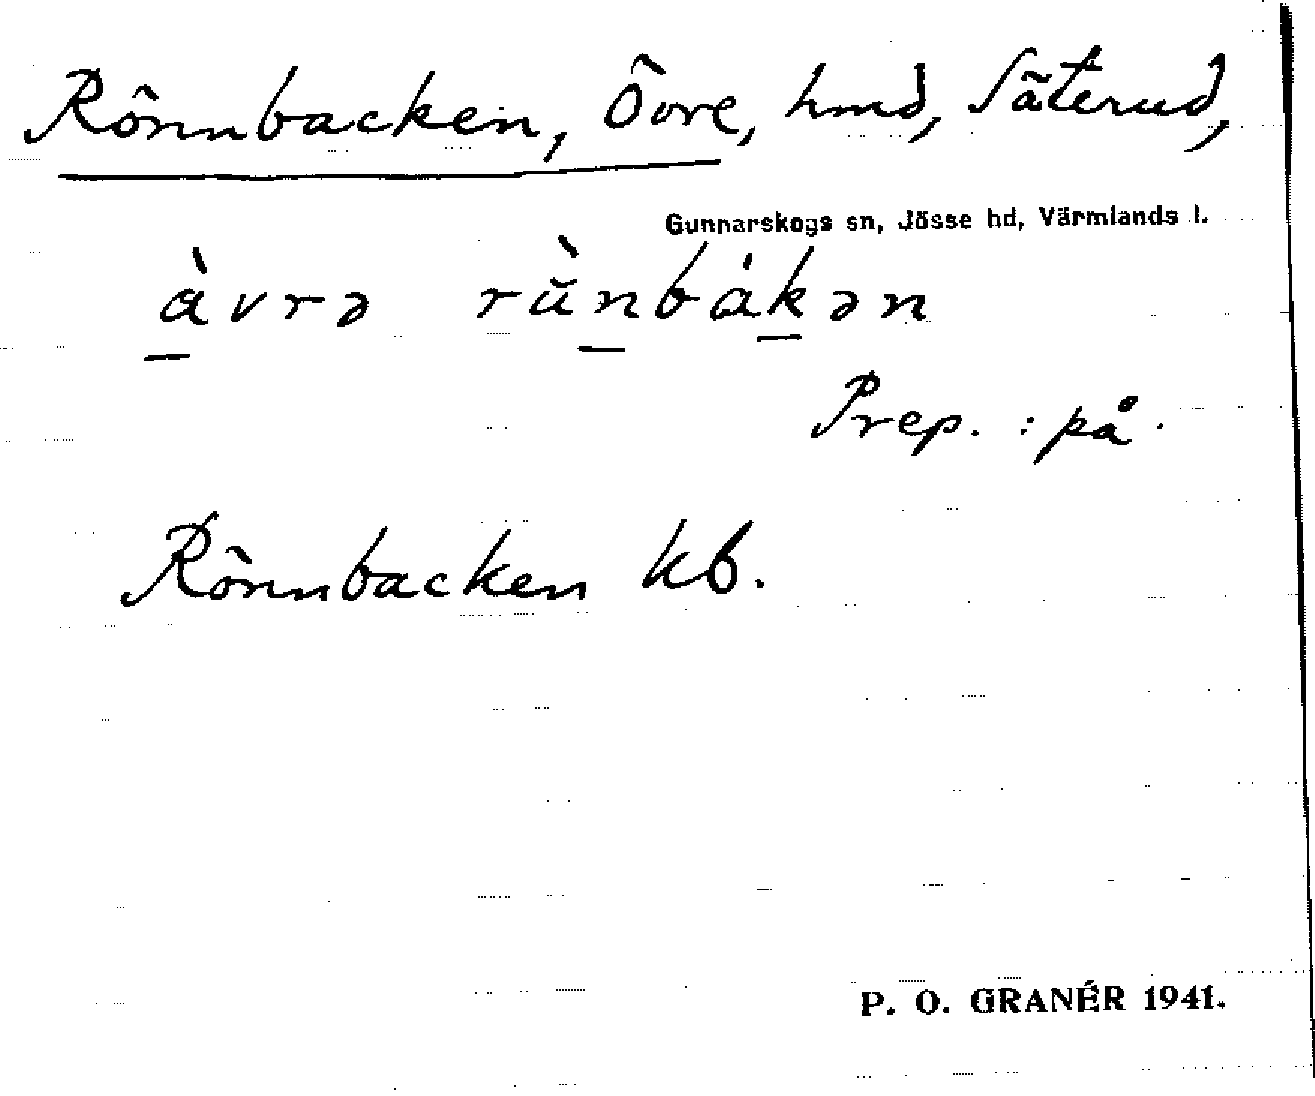 Rönnbacken, Övre, hmd, Säterud,
Gunnarskogs sn, Jösse hd, Värmlands l.
àvrə rŭ̀nbákən
Prep. : på.
Rönnbacken kb.
P. O. GRANÉR 1941.